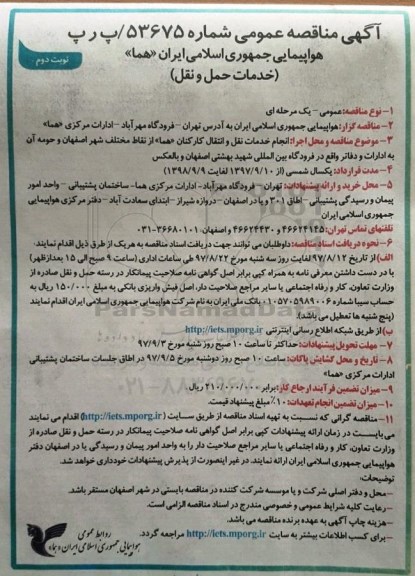 آگهی مناقصه عمومی شماره ۵۳۶۷۵/پ ر پ
هواپیمایی جمهوری اسلامی ایران «هما»
(خدمات حمل و نقل)
نوبت دوم
۱- نوع مناقصه: عمومی – یک مرحله ای
۲- مناقصه گزار: هواپیمایی جمهوری اسلامی ایران به آدرس تهران – فرودگاه مهرآباد – ادارات مرکزی «هما»
۳- موضوع مناقصه و محل اجرا: انجام خدمات نقل و انتقال کارکنان «هما» از نقاط مختلف شهر اصفهان و حومه آن
به ادارات و دفاتر واقع در فرودگاه بین المللی شهید بهشتی اصفهان و بالعکس
۴- مدت قرارداد: یکسال شمسی (از ۱۳۹۷/۹/۱۰ لغایت ۱۳۹۸/۹/۹)
۵- محل خرید و ارائه پیشنهادات: تهران – فرودگاه مهرآباد- ادارات مرکزی هما- ساختمان پشتیبانی – واحد امور
پیمان و رسیدگی پشتیبانی – اطاق ۳۰۱ و یا در اصفهان – دروازه شیراز – ابتدای سعادت آباد – دفتر مرکزی هواپیمایی
جمهوری اسلامی ایران
تلفنهای تماس تهران: ۴۶۶۲۴۱۴۵ و ۴۶۶۲۴۴۳۰ اصفهان ۳۶۶۸۰۱۰۱-۰۳۱
۶- نحوه دریافت اسناد مناقصه: داوطلبان می توانند جهت دریافت اسناد مناقصه به هریک از طرق ذیل اقدام نمایند.
الف) از تاریخ ۹۷/۸/۱۲ لغایت روز سه شنبه مورخ ۹۷/۸/۲۲ طی ساعات اداری (ساعت ۹ صبح الی ۱۵ بعدازظهر)
با در دست داشتن معرفی نامه به همراه کپی برابر اصل گواهی نامه صلاحیت پیمانکار در رسته حمل و نقل صادره از
وزارت تعاون، کار و رفاه اجتماعی یا سایر مراجع صلاحیت دار، اصل فیش واریزی بانکی به مبلغ ۱۵۰/۰۰۰ ریال به
حساب سیبا شماره ۰۱۰۵۷۰۵۹۸۹۰۰۶ بانک ملی ایران به نام شرکت هواپیمایی جمهوری اسلامی ایران اقدام نمایند
(پنج شنبه ها تعطیل می باشد).
ب) از طریق شبکه اطلاع رسانی اینترنتی http://iets.mporg.ir
۷- مهلت تحویل پیشنهادات: حداکثر تا ساعت ۱۰ صبح روز شنبه مورخ ۹۷/۹/۳
۸- تاریخ و محل گشایش پاکات: ساعت ۱۰ صبح روز دوشنبه مورخ ۹۷/۹/۵ در اطاق جلسات ساختمان پشتیبانی
ادارات مرکزی «هما»
۹- میزان تضمین فرآیند ارجاع کار: برابر ۲۱۰/۰۰۰/۰۰۰ ریال.
۱۰- میزان تضمین انجام تعهدات: ۱۰٪ مبلغ پیشنهاد قیمت.
۱۱- مناقصه گرانی که نسبت به تهیه اسناد مناقصه از طریق سایت (http://iets.mporg.ir) اقدام می نمایند
می بایست در زمان ارائه پیشنهادات کپی برابر اصل گواهی نامه صلاحیت پیمانکار در رسته حمل و نقل صادره از
وزارت تعاون، کار و رفاه اجتماعی یا سایر مراجع صلاحیت دار را به واحد امور پیمان و رسیدگی یا در اصفهان دفتر
هواپیمایی جمهوری اسلامی ایران ارائه نمایند. در غیر اینصورت از پذیرش پیشنهادات خودداری خواهد شد.
توضیحات:
- محل و دفتر اصلی شرکت و یا موسسه شرکت کننده در مناقصه بایستی در شهر اصفهان مستقر باشد.
- رعایت کلیه شرایط عمومی و خصوصی مندرج در اسناد مناقصه الزامی است.
- هزینه چاپ آگهی به عهده برنده مناقصه می باشد.
- برای کسب اطلاعات بیشتر به سایت http://iets.mporg.ir مراجعه گردد.
روابط عمومی
هواپیمایی جمهوری اسلامی ایران «هما»
ParsNamadData